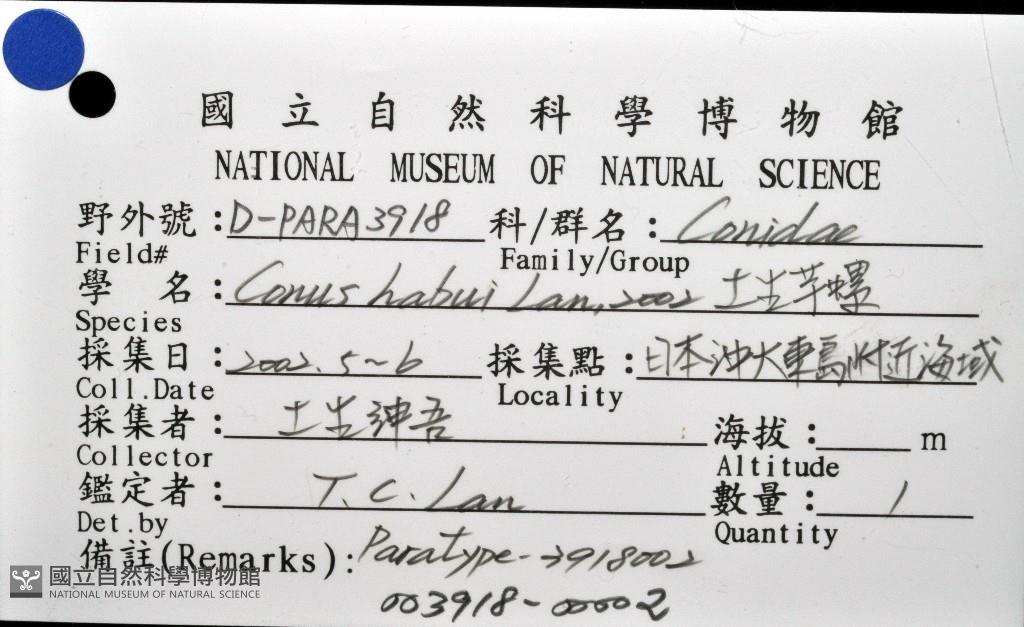 國立自然科學博物館
NATIONAL MUSEUM OF NATURAL SCIENCE
野外號：D-PARA3918 科/群名：Conidae
Field# Family/Group
學名：Conus habui Lan, 2002 土生芋螺
Species
採集日：2002.5~6 採集點：日本沖大車島附近海域
Coll.Date Locality
採集者：土生紳吾 海拔： m
Collector Altitude
鑑定者：T. C. Lan 數量：1
Det.by Quantity
備註(Remarks)：Paratype-3918002
003918-00002
國立自然科學博物館
NATIONAL MUSEUM OF NATURAL SCIENCE